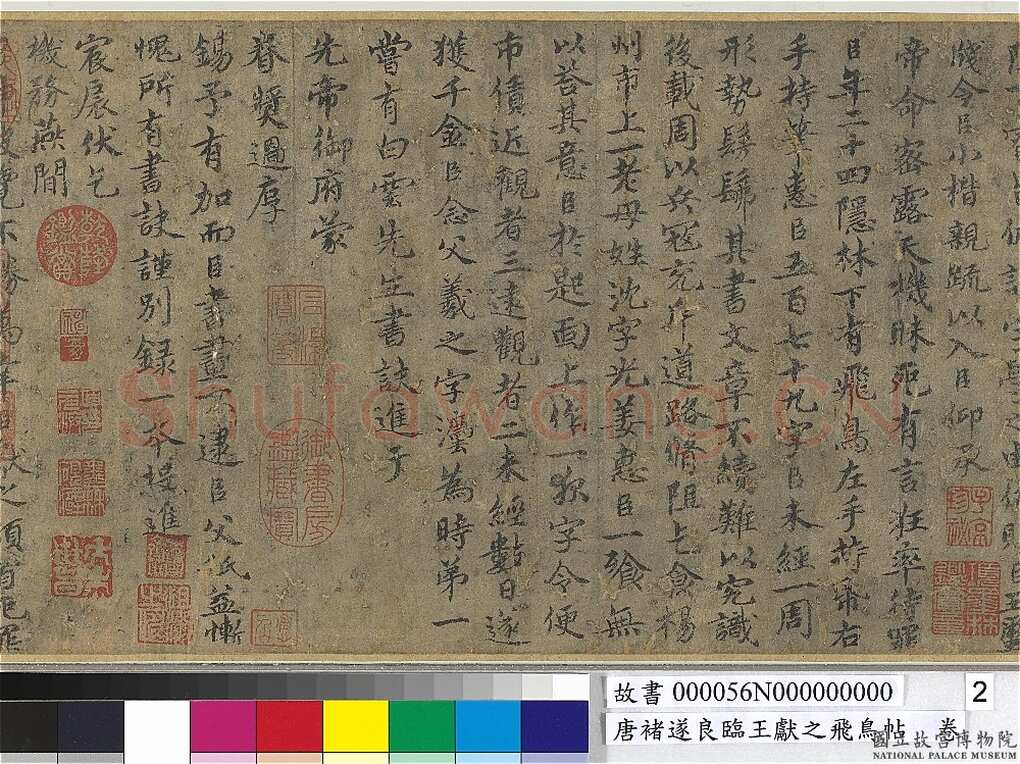 牋今臣小楷親疏以入臣仰承
帝命密露天機昧死有言狂率待罪
臣年二十四隱林下有飛鳥左手持帋右
手持筆惠臣五百七十九字臣未經一周
形勢髣髴其書文章不續難以究識
後載周以兵寇充斥道路脩阻乞食楊
州市上一老母姓沈字光姜惠臣一飡無
以荅其意臣於匙面上作一夜字令便
市債近觀者三遠觀者二未經數日遂
獲千金臣念父羲之字灋為時第一
嘗有白雲先生書訣進于
先帝御府蒙
眷獎過厚
錫予有加而臣書畫不逮臣父秪益慚
愧所有書訣謹別録一本投進
宸扆伏乞
機務燕閒
Shufawang.CN
故書 000056N000000000
2
唐褚遂良臨王獻之飛鳥帖 卷
國立故宮博物院
NATIONAL PALACE MUSEUM